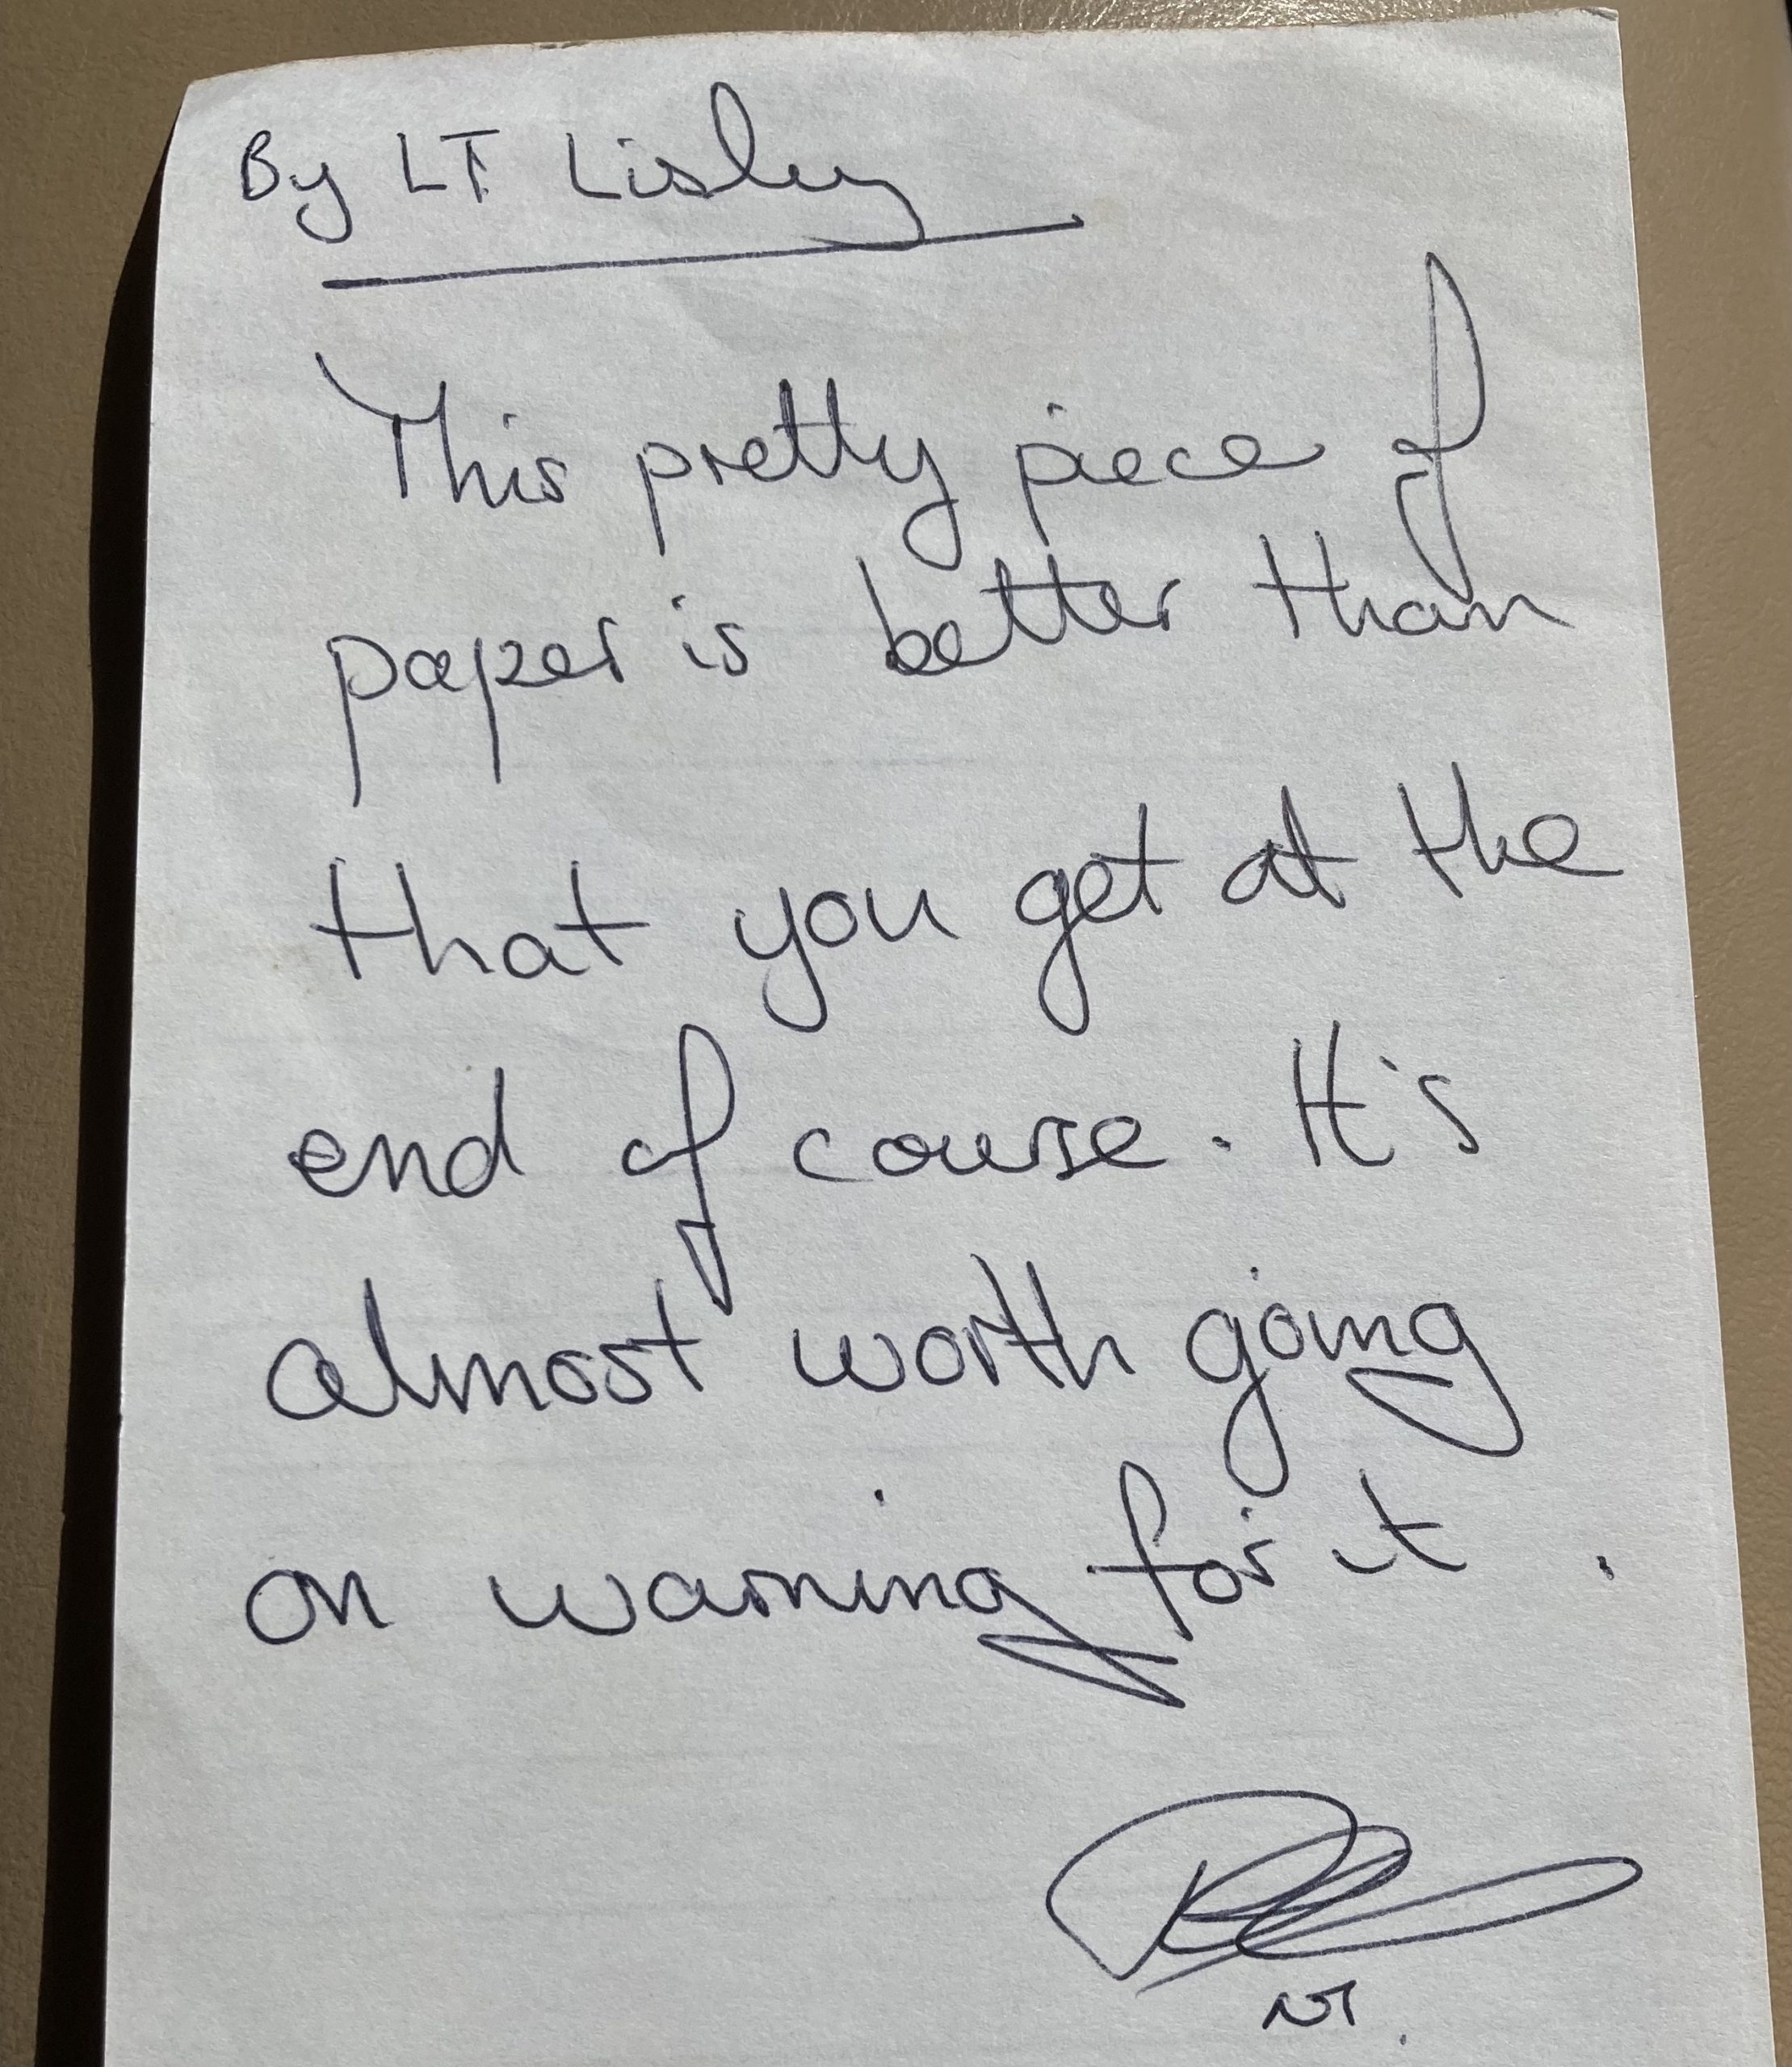 By LT Lisley
This pretty piece of
paper is better than
that you get at the
end of course. It's
almost worth going
on warning for it.